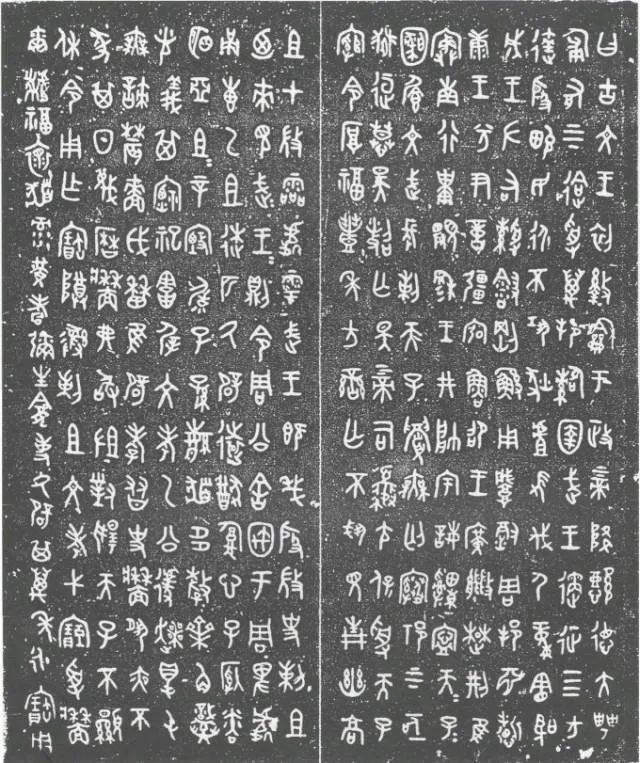 曰古文王初盭龢于政上帝降懿德大甹
匍有上下迨受萬邦圉武王遹征四方
達殷畯民永不巩狄虘伐尸童憲聖
成王左右剛鯀用肇徹周邦淵哲
康王兮尹億疆弘魯卲王廣楚荊隹
寏南行祗顯穆王井帥宇誨申寧天子
天子文武長剌天子無匄上下
亟獄逗慕昊照亡斁上帝司尢保受天子
綰令厚福豐年方蠻亡不見青幽高
且才微霝處雩武王既殷微史剌且
迺來見武王武王則令周公舍于周卑處
甬叀乙且匹厥辟遠猷腹心子厥明
亞且且辛毓子孫多釐角
光義其禋祀害屖文考乙公遽爽得
屯無諫農穡歷隹辟孝友史牆夙夜不
其日蔑歷牆弗敢對揚天子不顯
休令用乍寶尊彝剌且文考弋受牆
爾福懷彔黃耇彌生事厥辟其萬年永寶用